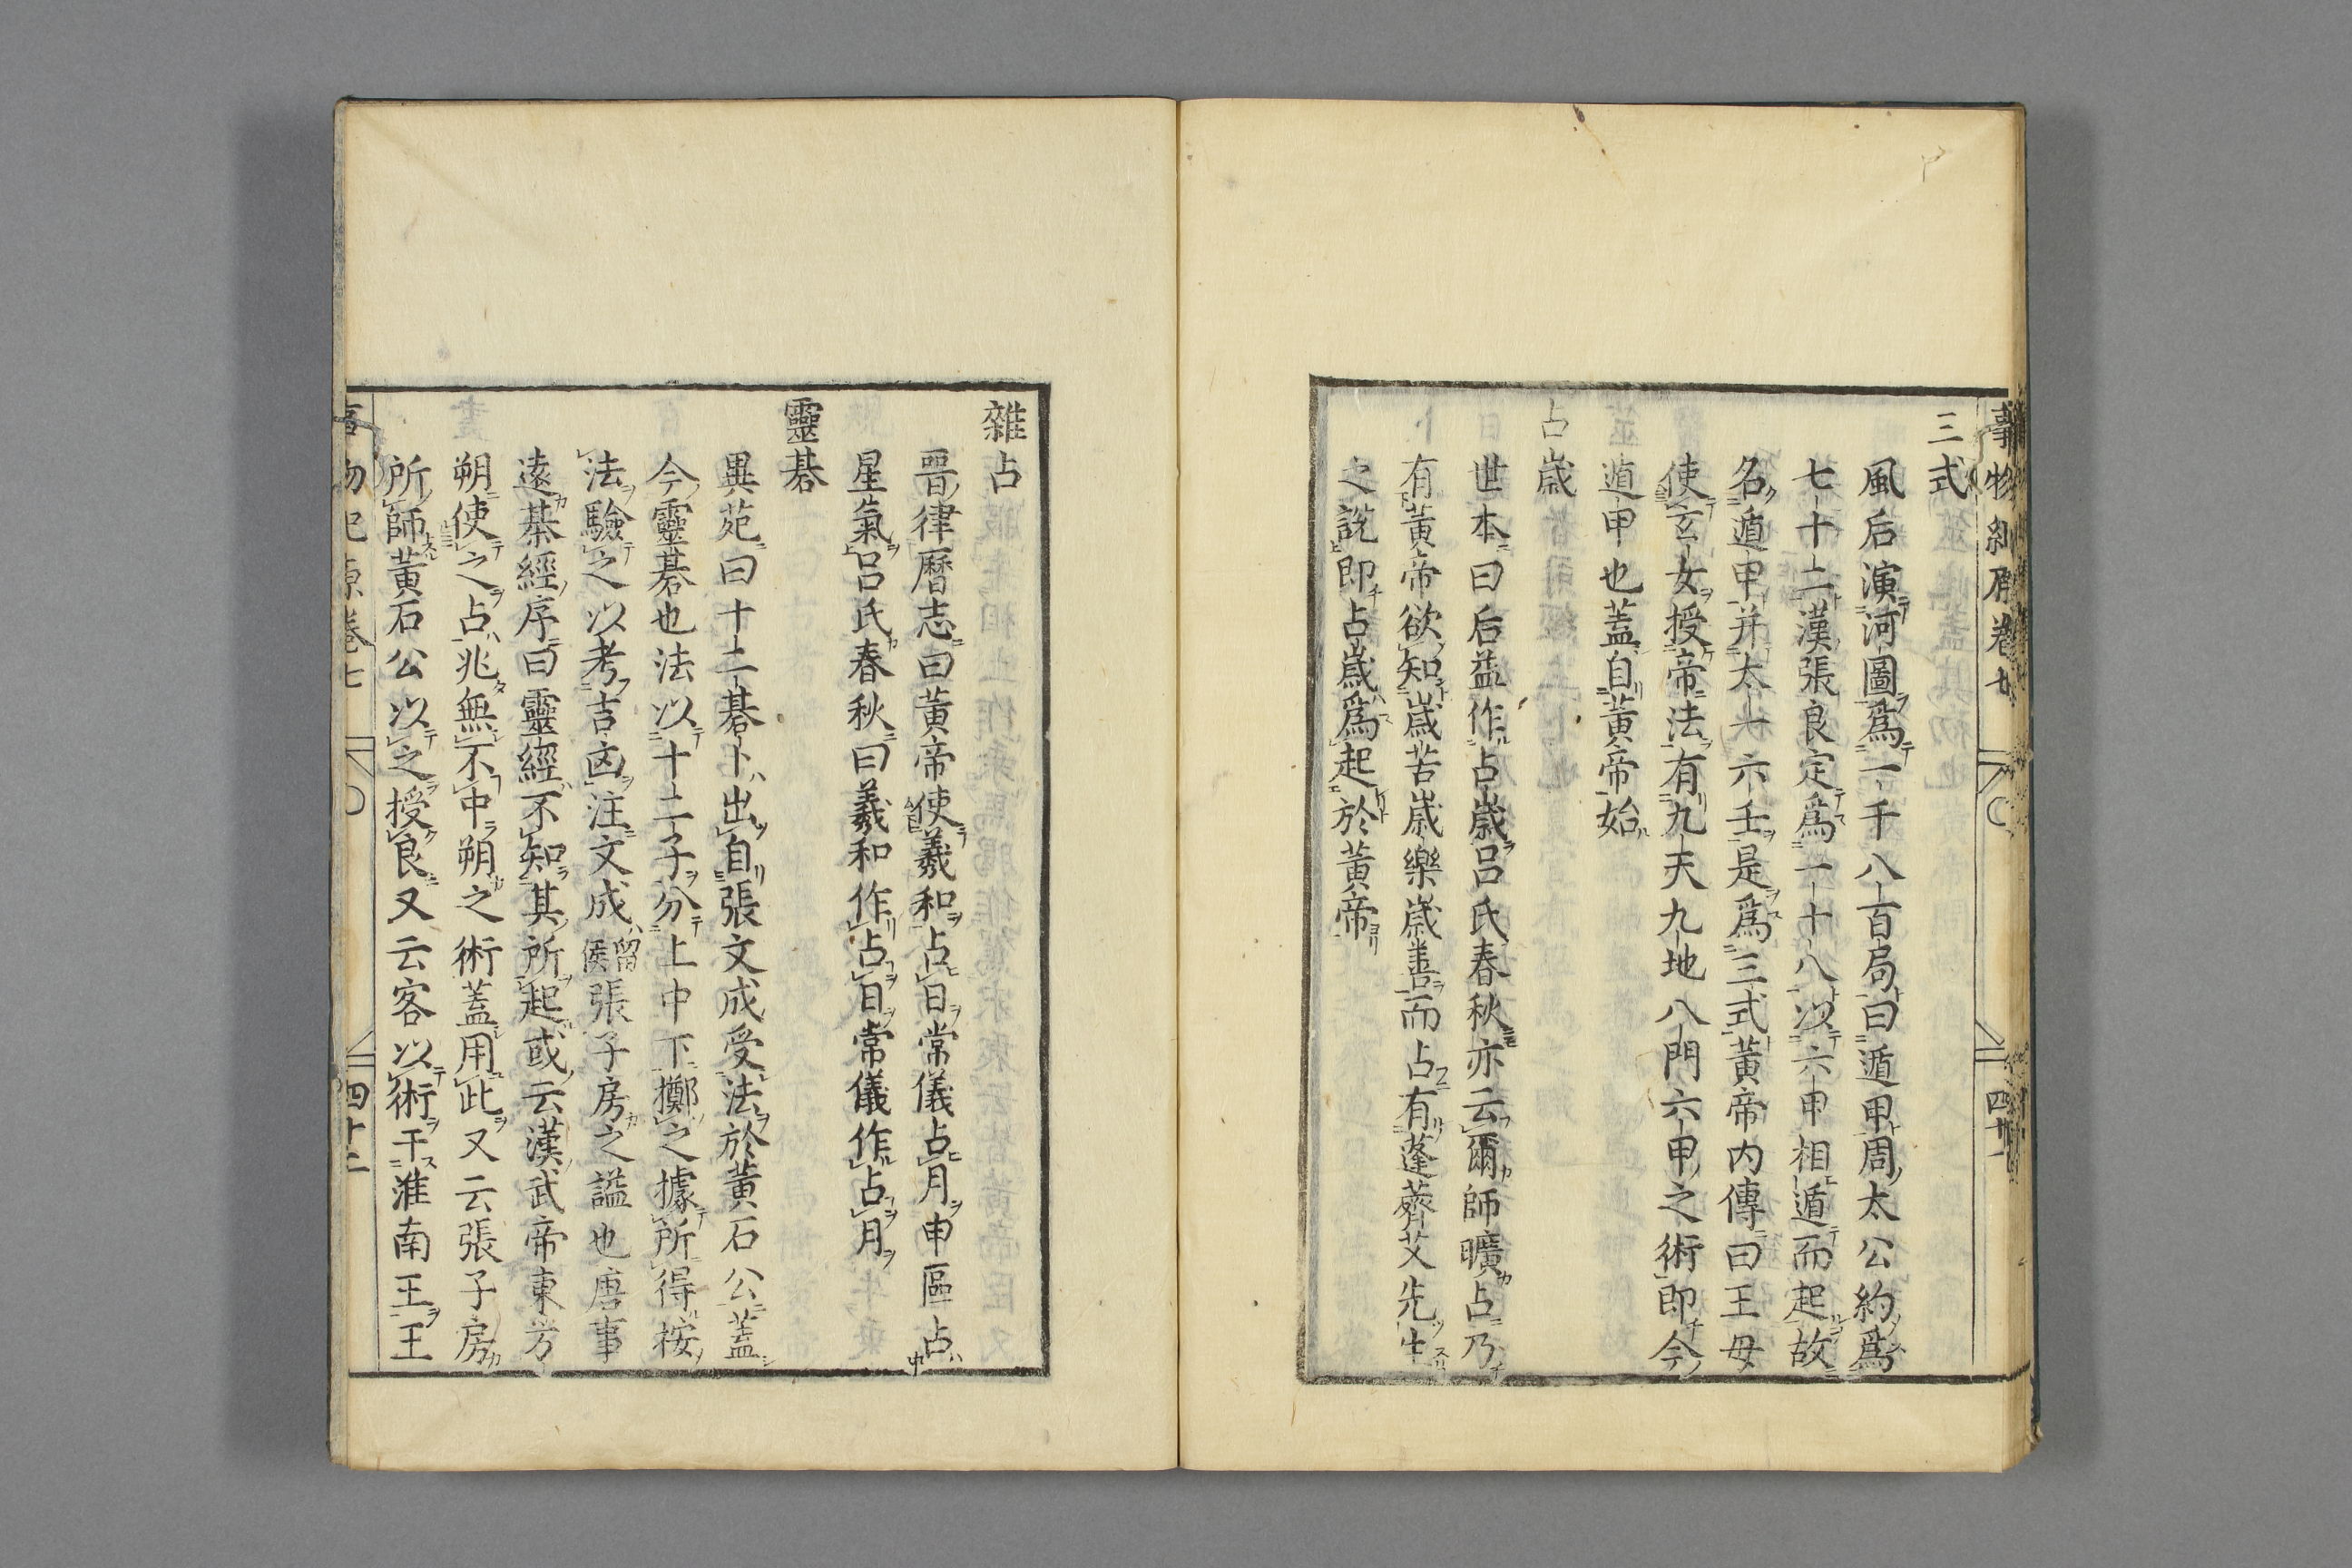 事物紀原卷七 四十一
三式
風后演河圖爲一千八百局曰遁甲周太公約爲
七十二漢張良定爲一十八以六甲相遁而起故
名遁甲并太一六壬是爲三式黃帝内傳曰王母
使玄女授帝法有九天九地八門六甲之術即今
遁甲也蓋自黃帝始
占歲
世本曰后益作占歲呂氏春秋亦云爾師曠占乃
有黃帝欲知歲苦歲樂歲善而占有蓬薺艾先生
之説即占歲爲起於黃帝
雜占
晉律曆志曰黃帝使羲和占日常儀占月申區占
星氣呂氏春秋曰羲和作占日常儀作占月
靈碁
異苑曰十二碁卜出自張文成受法於黃石公蓋
今靈碁也法以十二子分上中下擲之據所得按
法驗之以考吉凶注文成留侯張子房之謚也唐事
遠棊經序曰靈經不知其所起或云漢武帝東方
朔使之占兆無不中朔之術蓋用此又云張子房
所師黃石公以之授良又云客以術干淮南王王
事物紀原卷七 四十二